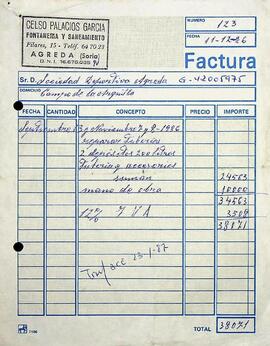 CELSO PALACIOS GARCIA
FONTANERIA Y SANEAMIENTO
Pilares, 15 - Teléf. 64 70 23
AGREDA (Soria)
D. N. I. 16.676.035
NUMERO 123
FECHA 11-12-86
Factura
Sr. D. Sociedad Deportiva Agreda G-42005975
DOMICILIO Campo de la
FECHA CANTIDAD CONCEPTO IMPORTE
Noviembre 7 y 8 - 1986
reparar tuberias
2 depósitos 200 litros
tuberia y accesorios
suman 24563
mano de obra 10000
34563
12% I V A 3508
38071
23-1-87
TOTAL 38071